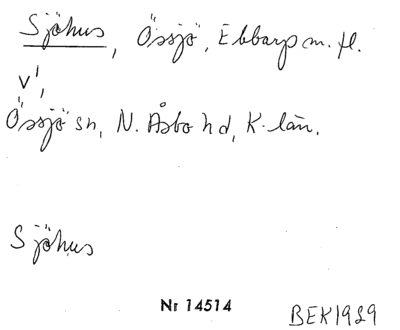 Sjöhus, Össjö, Ebbarp m. fl.
v',
Össjö sn, N. Åsbo hd, K. län.
Sjöhus
Nr 14514
BEK1929